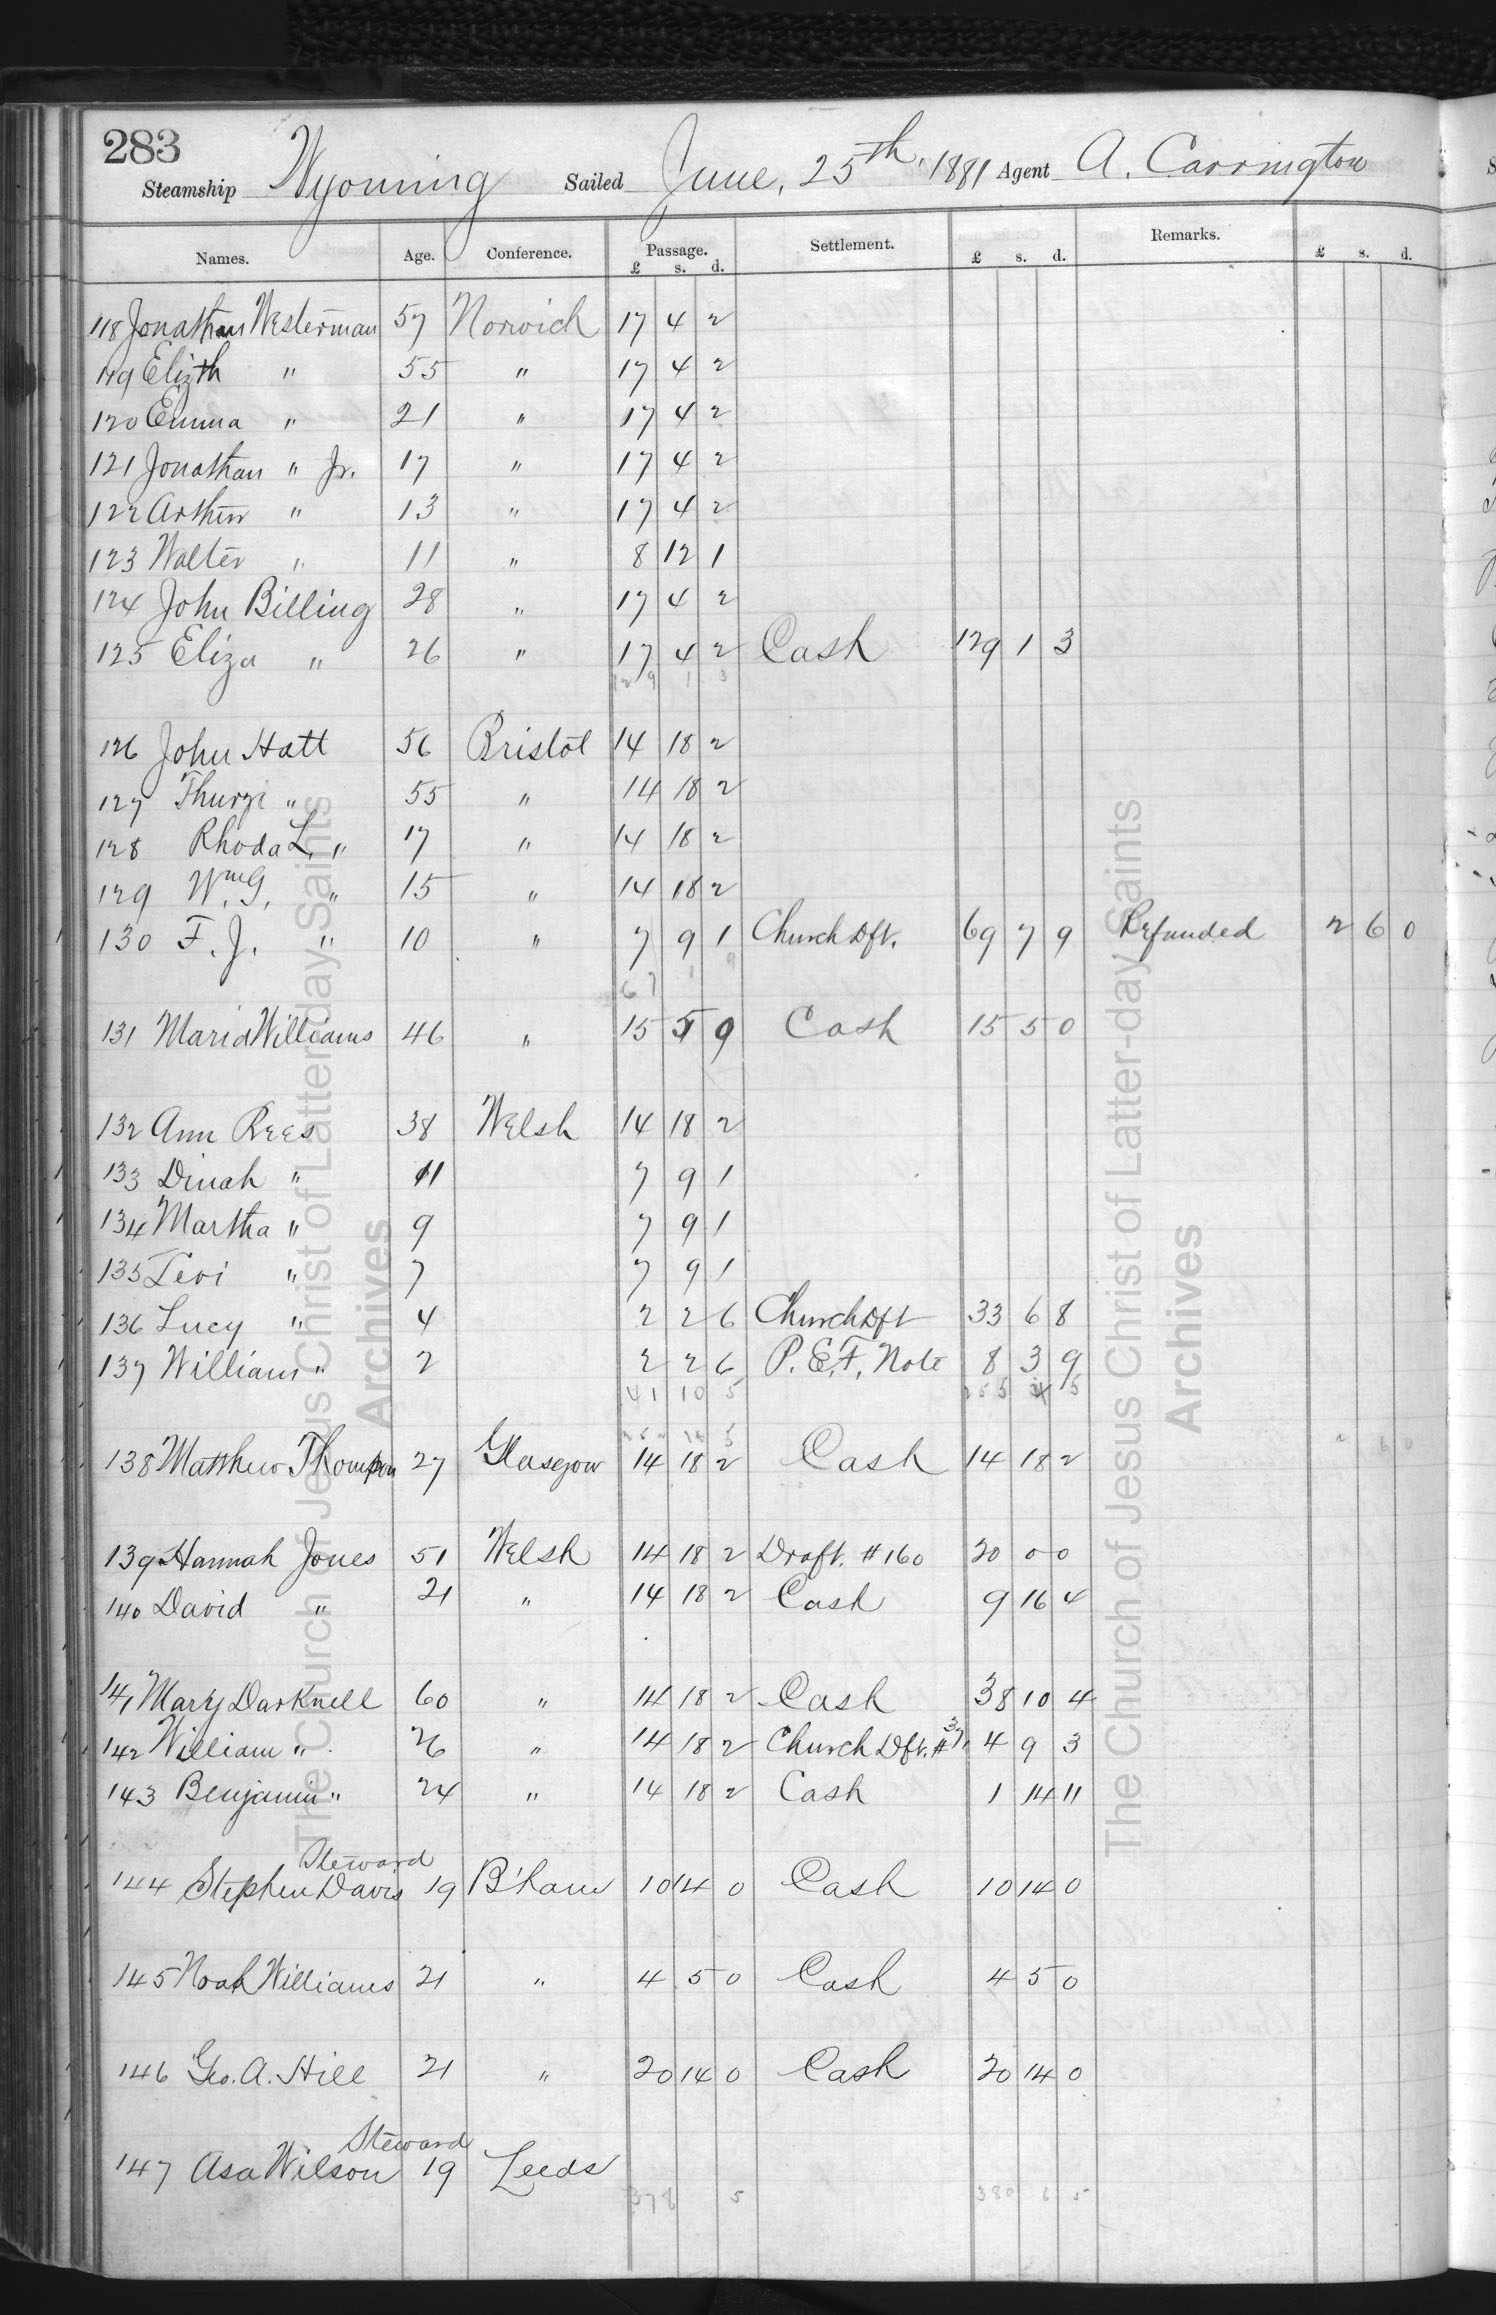 283
Steamship Wyoming Sailed June, 25th, 1881 Agent A. Carrington
Names. Age. Conference. Passage. £ s. d. Settlement. £ s. d. Remarks. £ s. d.
118 Jonathan Westerman 57 Norwich 17 4 2
119 Elizth " 55 " 17 4 2
120 Emma " 21 " 17 4 2
121 Jonathan " Jr. 17 " 17 4 2
122 Arthur " 13 " 17 4 2
123 Walter " 11 " 8 12 1
124 John Billing 28 " 17 4 2
125 Eliza " 26 " 17 4 2 Cash 129 1 3
129 1 3
126 John Hatt 56 Bristol 14 18 2
127 Thurzi " 55 " 14 18 2
128 Rhoda L. " 17 " 14 18 2
129 Wm. G. " 15 " 14 18 2
130 F. J. " 10 " 7 9 1 Church Dft. 69 7 9 Refunded 2 6 0
67 1 9
131 Maria Williams 46 " 15 5 0 Cash 15 5 0
132 Ann Rees 38 Welsh 14 18 2
133 Dinah " 11 7 9 1
134 Martha " 9 7 9 1
135 Levi " 7 7 9 1
136 Lucy " 4 2 2 6 Church Dft 33 6 8
137 William " 2 2 2 6 P. E. F. Note 8 3 9
41 10 5 255 4 5
2 6 0
138 Matthew Thompson 27 Glasgow 14 18 2 Cash 14 18 2
139 Hannah Jones 51 Welsh 14 18 2 Draft. #160 20 0 0
140 David " 21 " 14 18 2 Cash 9 16 4
141 Mary Darknell 60 " 14 18 2 Cash 38 10 4
142 William " 26 " 14 18 2 Church Dft. #37, 4 9 3
143 Benjamin " 24 " 14 18 2 Cash 1 14 11
Steward
144 Stephen Davis 19 B'ham 10 14 0 Cash 10 14 0
145 Noah Williams 21 " 4 5 0 Cash 4 5 0
146 Geo. A. Hill 21 " 20 14 0 Cash 20 14 0
Steward
147 Asa Wilson 19 Leeds
378 5 380 6 5
The Church of Jesus Christ of Latter-day Saints
Archives
The Church of Jesus Christ of Latter-day Saints
Archives